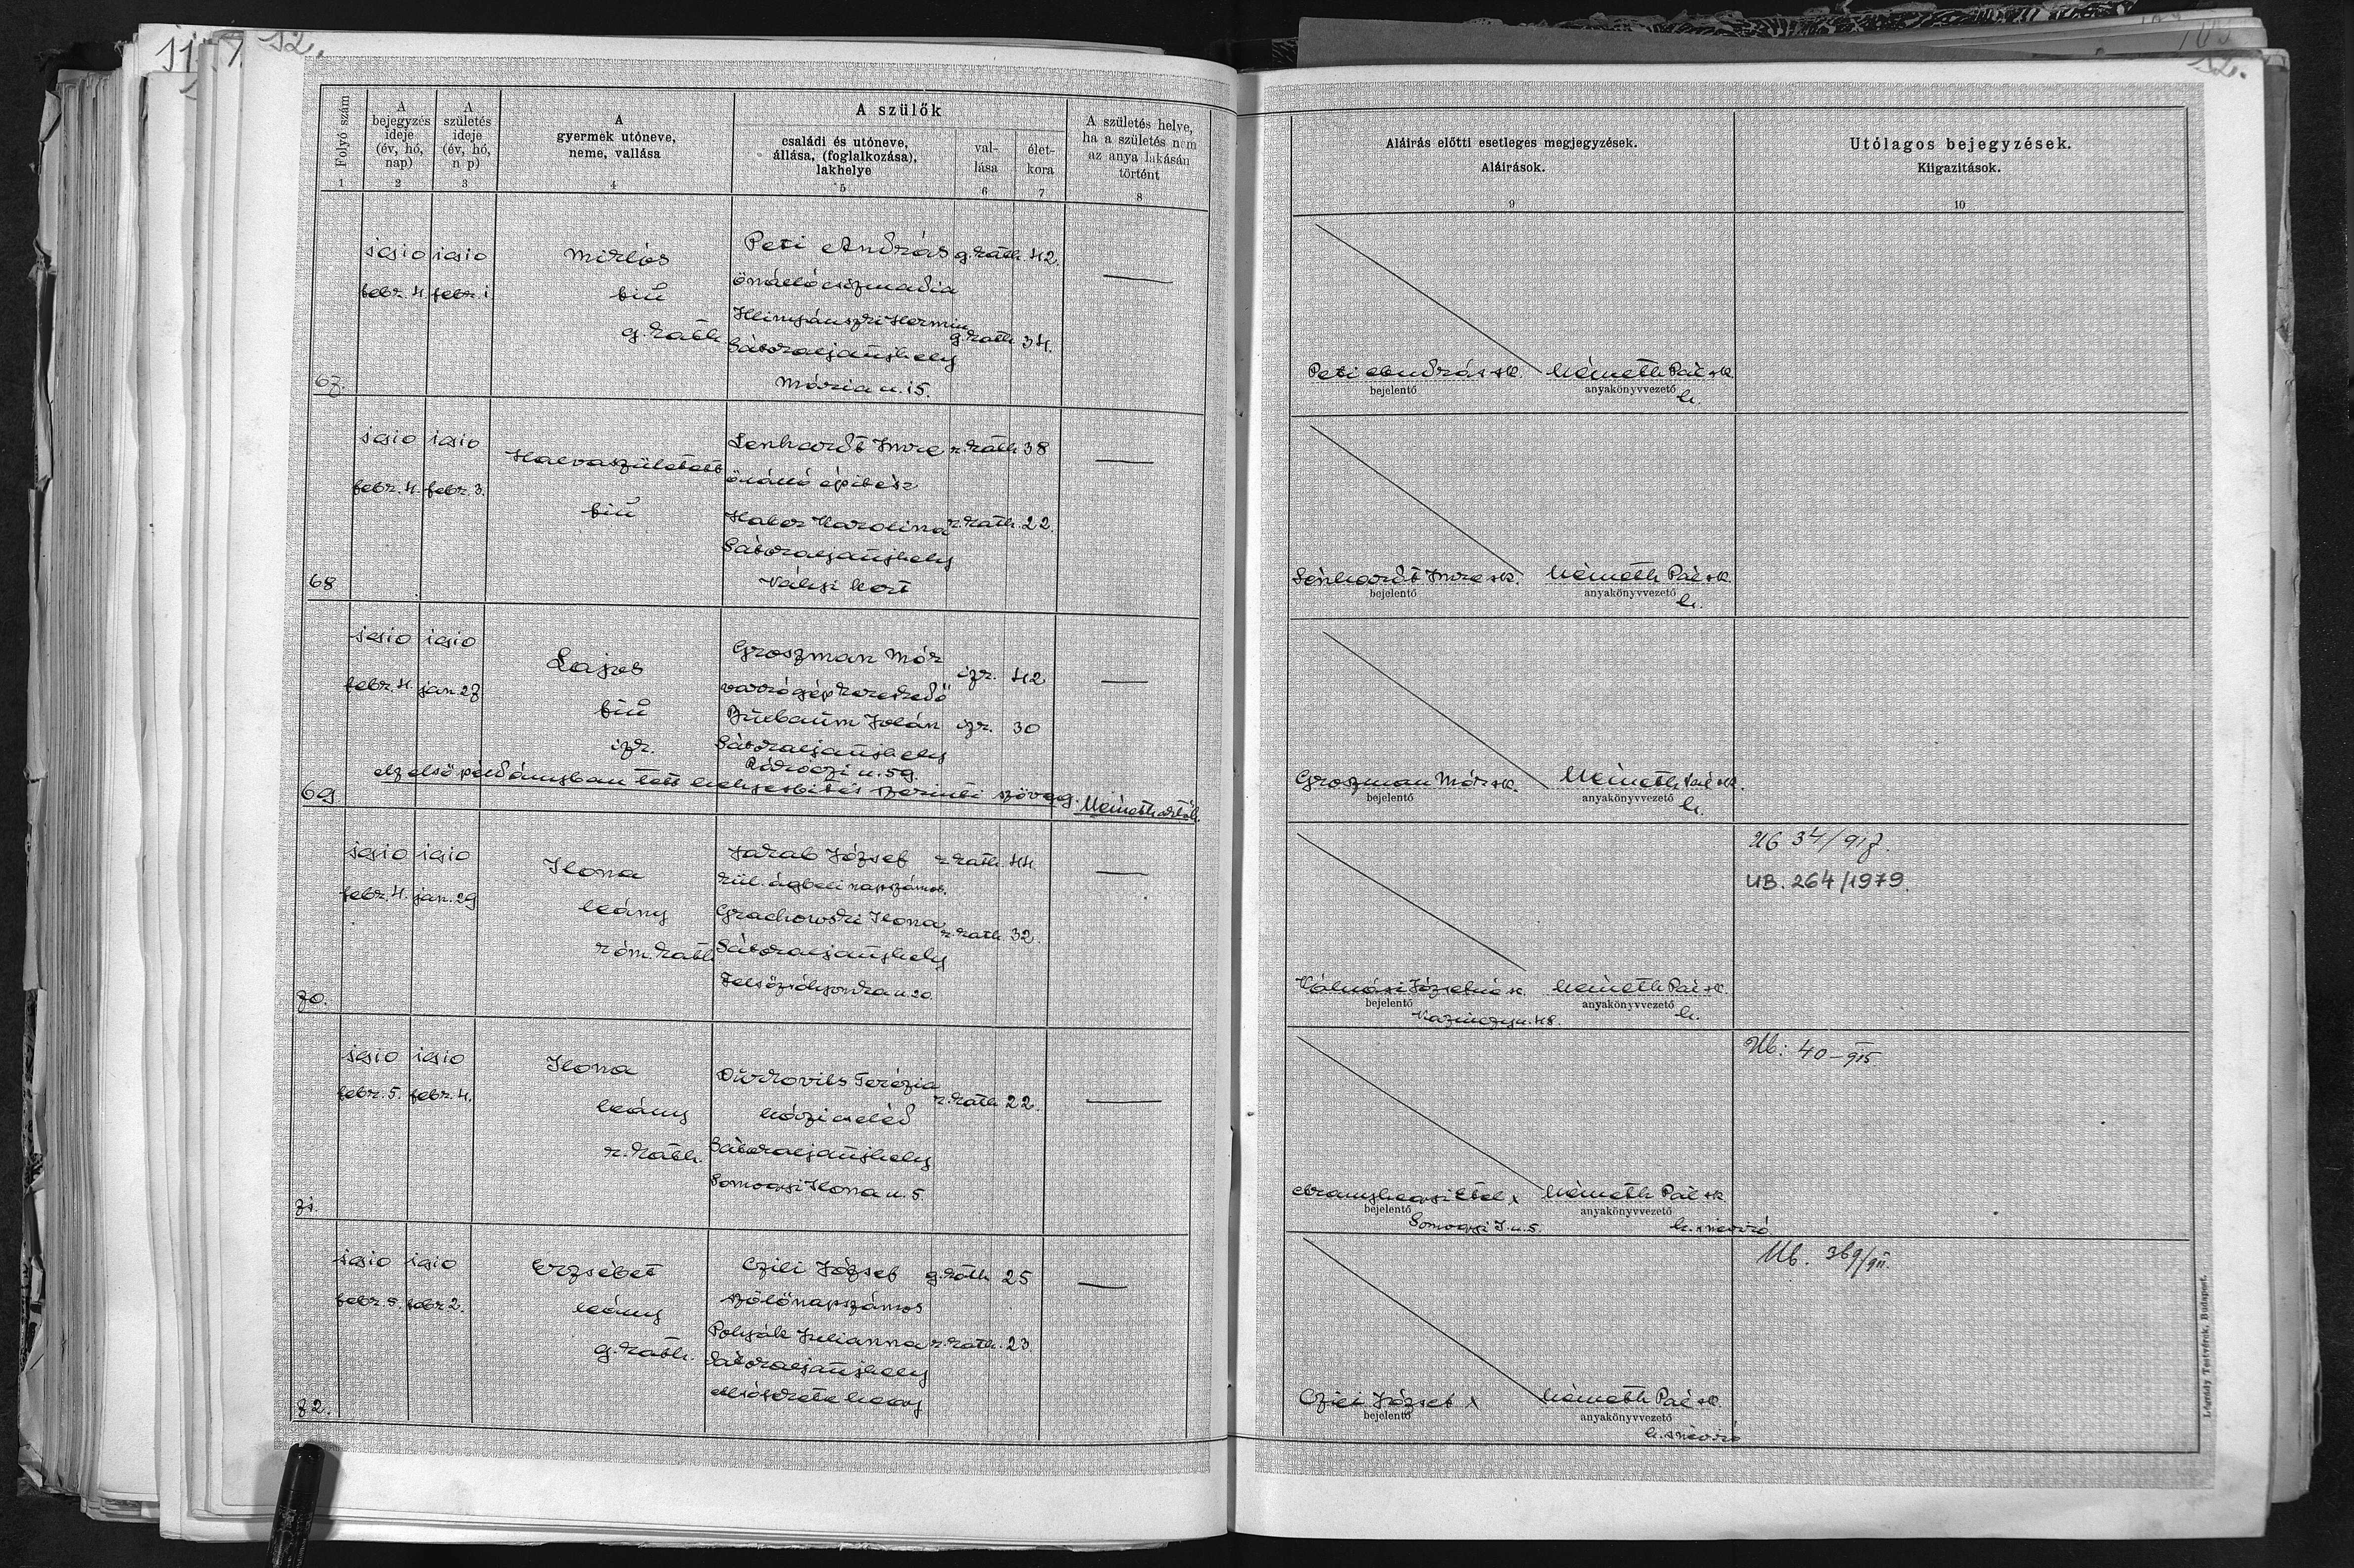 12.
12.
Folyó szám
A bejegyzés ideje (év, hó, nap)
A születés ideje (év, hó, n p)
A gyermek utóneve, neme, vallása
A szülők
családi és utóneve, állása, (foglalkozása), lakhelye
val-lása
élet-kora
A születés helye, ha a születés nem az anya lakásán történt
Aláírás előtti esetleges megjegyzések.
Aláírások.
Utólagos bejegyzések.
Kiigazítások.
1 2 3 4 5 6 7 8 9 10
67.
1910 1910 Miklós Peti András g.kath. 42.
febr. 4. febr. 1. fiú önálló csizmadia
g. kath. Hermin g.kath 34.
Sátoraljaújhely
Mária u. 15.
Peti András sk. Németh Pál sk.
bejelentő anyakönyvvezető
h.
68
1910 1910 Halvaszületett Lenhardt Imre r. kath 38
febr. 4. febr. 3. önálló építész
fiú Karolina r. kath. 22.
Sátoraljaújhely
Lenhardt Imre sk. Németh Pál sk.
bejelentő anyakönyvvezető
h.
69
1910 1910 Lajos Groszman Mór izr. 42
febr. 4. jan. 27 varrógépkereskedő
fiú Jolán izr. 30
izr. Sátoraljaújhely
Rákóczi u. 59.
Az első példányban tett helyesbítés szerinti szöveg. Németh
Groszman Mór sk. Németh Pál sk.
bejelentő anyakönyvvezető
h.
70.
1910 1910 Ilona Jarab József r kath. 44.
febr. 4. jan. 29 napszámos.
leány Grachowski Ilona r. kath. 32.
róm. kath. Sátoraljaújhely
Felsőzsólyomka u. 20.
Józsefné sk. Németh Pál sk.
bejelentő anyakönyvvezető
Kazinczy u. 48. h.
Ub 34/917.
UB. 264/1979.
71.
1910 1910 Ilona Terézia r. kath 22.
febr. 5. febr. 4. leány házi cseléd
r. kath. Sátoraljaújhely
Somogyi Ilona u. 5.
Etel x Németh Pál sk.
bejelentő anyakönyvvezető
Somogyi I. u. 5. h. s névíró
Ub: 40-915.
72.
1910 1910 Erzsébet Czili József g. kath 25
febr. 5. febr 2. leány szőlőnapszámos
g. kath. Polyák Julianna r. kath. 23
Sátoraljaújhely
Czili József x Németh Pál sk.
bejelentő anyakönyvvezető
h. s névíró
Ub. 369/911.
Légrády Testvérek, Budapest.